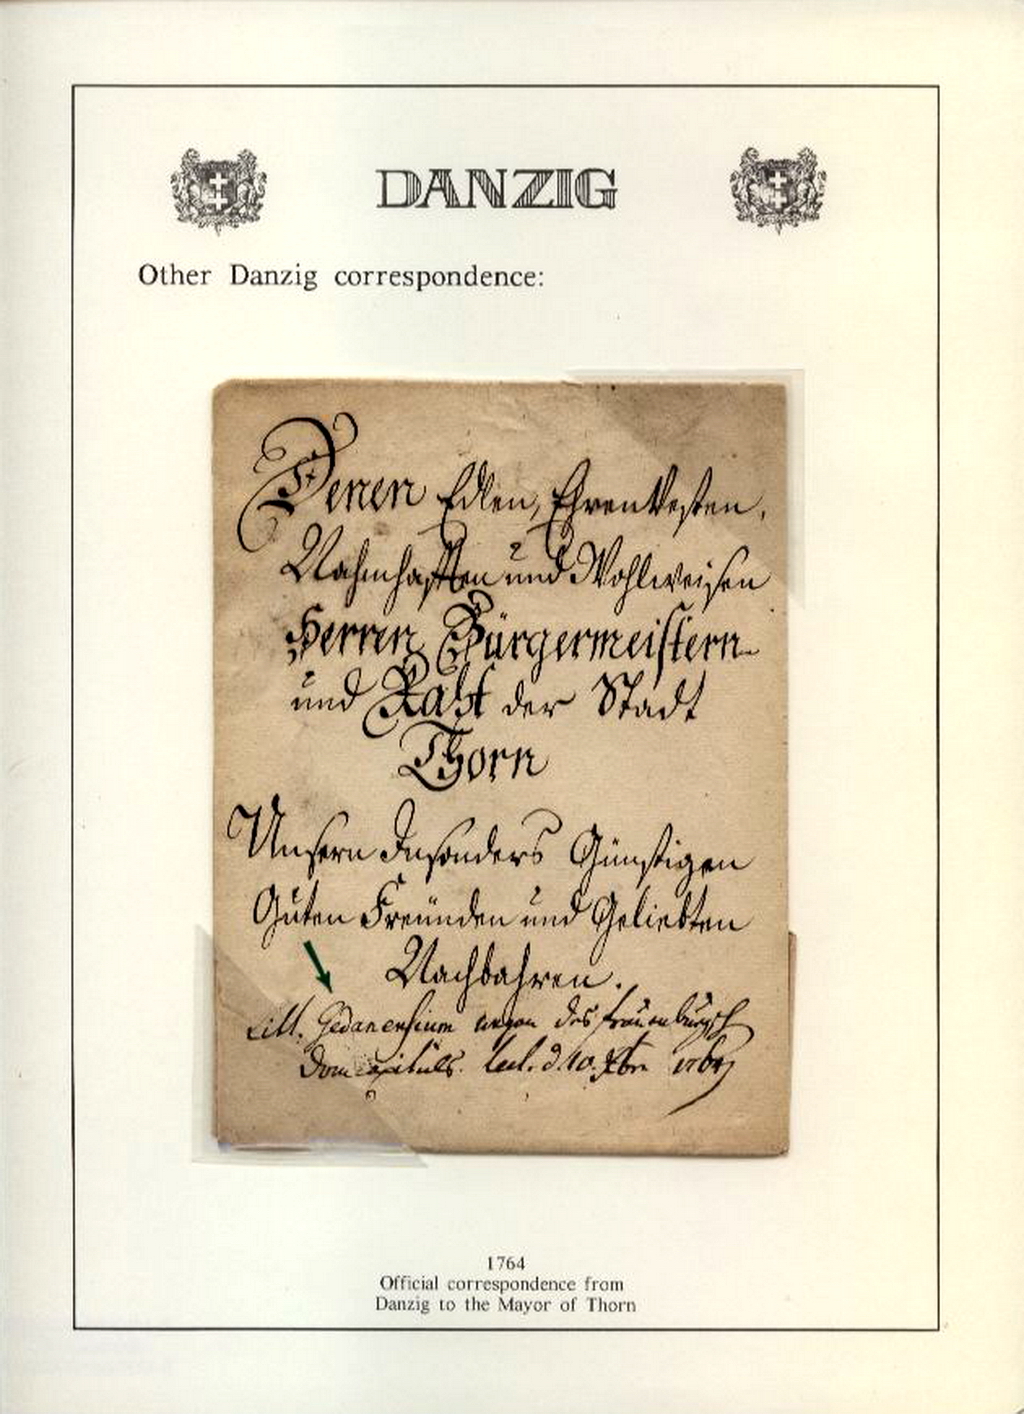 DANZIG
Other Danzig correspondence:
Denen Edlen, EhrenVesten,
Nahmhafften und Wohlweisen
Herren Bürgermeistern
und Raht der Stadt
Thorn
Unsern Insonders Günstigen
Guten Freünden und Geliebten
Nachbahren.
Litt. Gedanensium wegen des frauenburgsch
Domcapituls. d. 10. Xbr 1764
1764
Official correspondence from
Danzig to the Mayor of Thorn